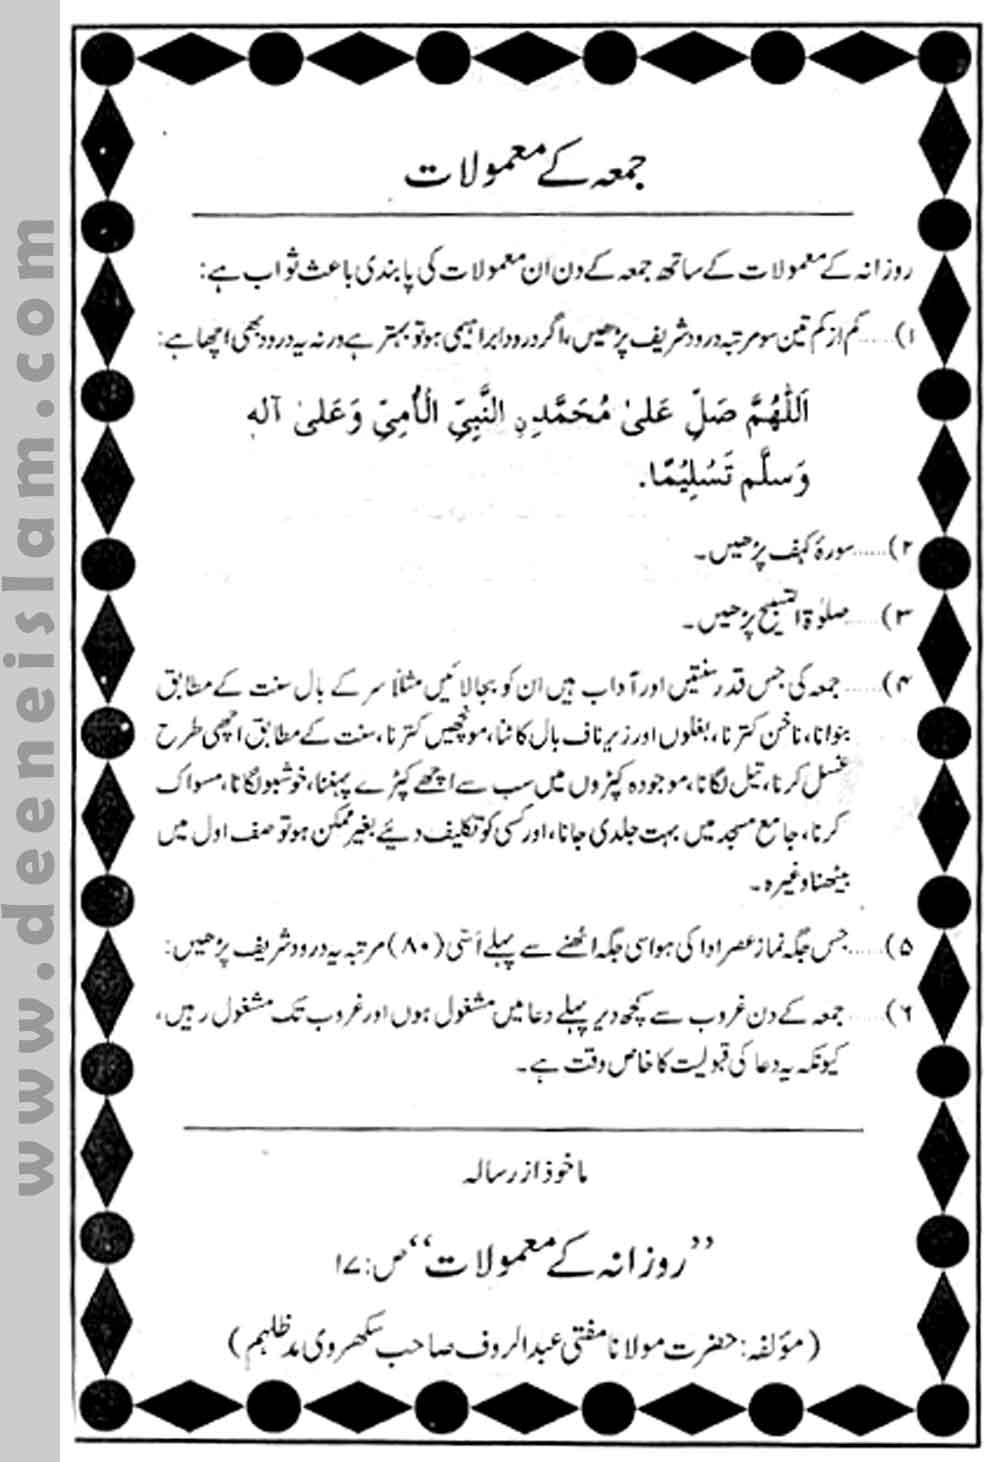 جمعہ کے معمولات
روزانہ کے معمولات کے ساتھ جمعہ کے دن ان معمولات کی پابندی باعث ثواب ہے:
۱)......کم از کم تین سو مرتبہ درود شریف پڑھیں، اگر درود ابراہیمی ہو تو بہتر ہے ورنہ یہ درود بھی اچھا ہے:
اَللّٰهُمَّ صَلِّ عَلیٰ مُحَمَّدِنِ النَّبِیِّ الْاُمِیِّ وَعَلیٰ آلِهٖ
وَسلَّم تَسْلِیْمًا.
۲)......سورۂ کہف پڑھیں۔
۳)......صلوٰۃ التسبیح پڑھیں۔
۴)......جمعہ کی جس قدر سنتیں اور آداب ہیں ان کو بجا لائیں مثلاً سر کے بال سنت کے مطابق
بنوانا، ناخن کترنا، بغلوں اور زیر ناف بال کاٹنا، مونچھیں کترنا، سنت کے مطابق اچھی طرح
غسل کرنا، تیل لگانا، موجودہ کپڑوں میں سب سے اچھے کپڑے پہننا، خوشبو لگانا، مسواک
کرنا، جامع مسجد میں بہت جلدی جانا، اور کسی کو تکلیف دیئے بغیر ممکن ہو تو صف اول میں
بیٹھنا وغیرہ۔
۵)......جس جگہ نماز عصر ادا کی ہو اسی جگہ اٹھنے سے پہلے اَسّی (۸۰) مرتبہ یہ درود شریف پڑھیں:
۶)......جمعہ کے دن غروب سے کچھ دیر پہلے دعا میں مشغول ہوں اور غروب تک مشغول رہیں،
کیونکہ یہ دعا کی قبولیت کا خاص وقت ہے۔
ماخوذ از رسالہ
”روزانہ کے معمولات“ ص:۱۷
(مؤلفہ: حضرت مولانا مفتی عبدالروف صاحب سکھروی مدظلہم)
www.deeneislam.com